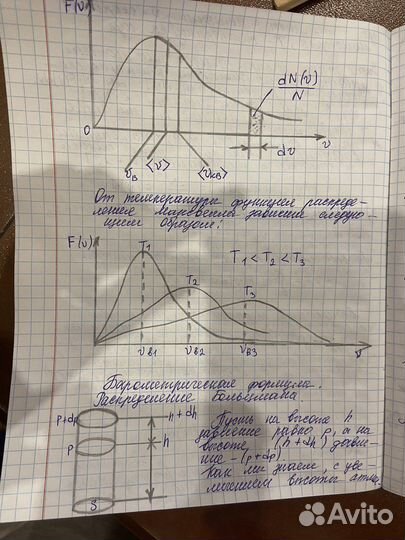 F(v)
dN(v)
N
0
v
dv
vв
⟨v⟩
⟨vкв⟩
От температуры функция распреде-
ления Максвелла зависит следую-
щим образом:
F(v)
T1
T1 < T2 < T3
T2
T3
vв1
vв2
vв3
v
Барометрическая формула.
Распределение Больцмана
p+dp
h+dh
Пусть на высоте h
p
h
давление равно p, а на
высоте (h+dh) давле-
ние - (p+dp)
Как мы знаем, с уве
личением высоты атмо
S
Avito